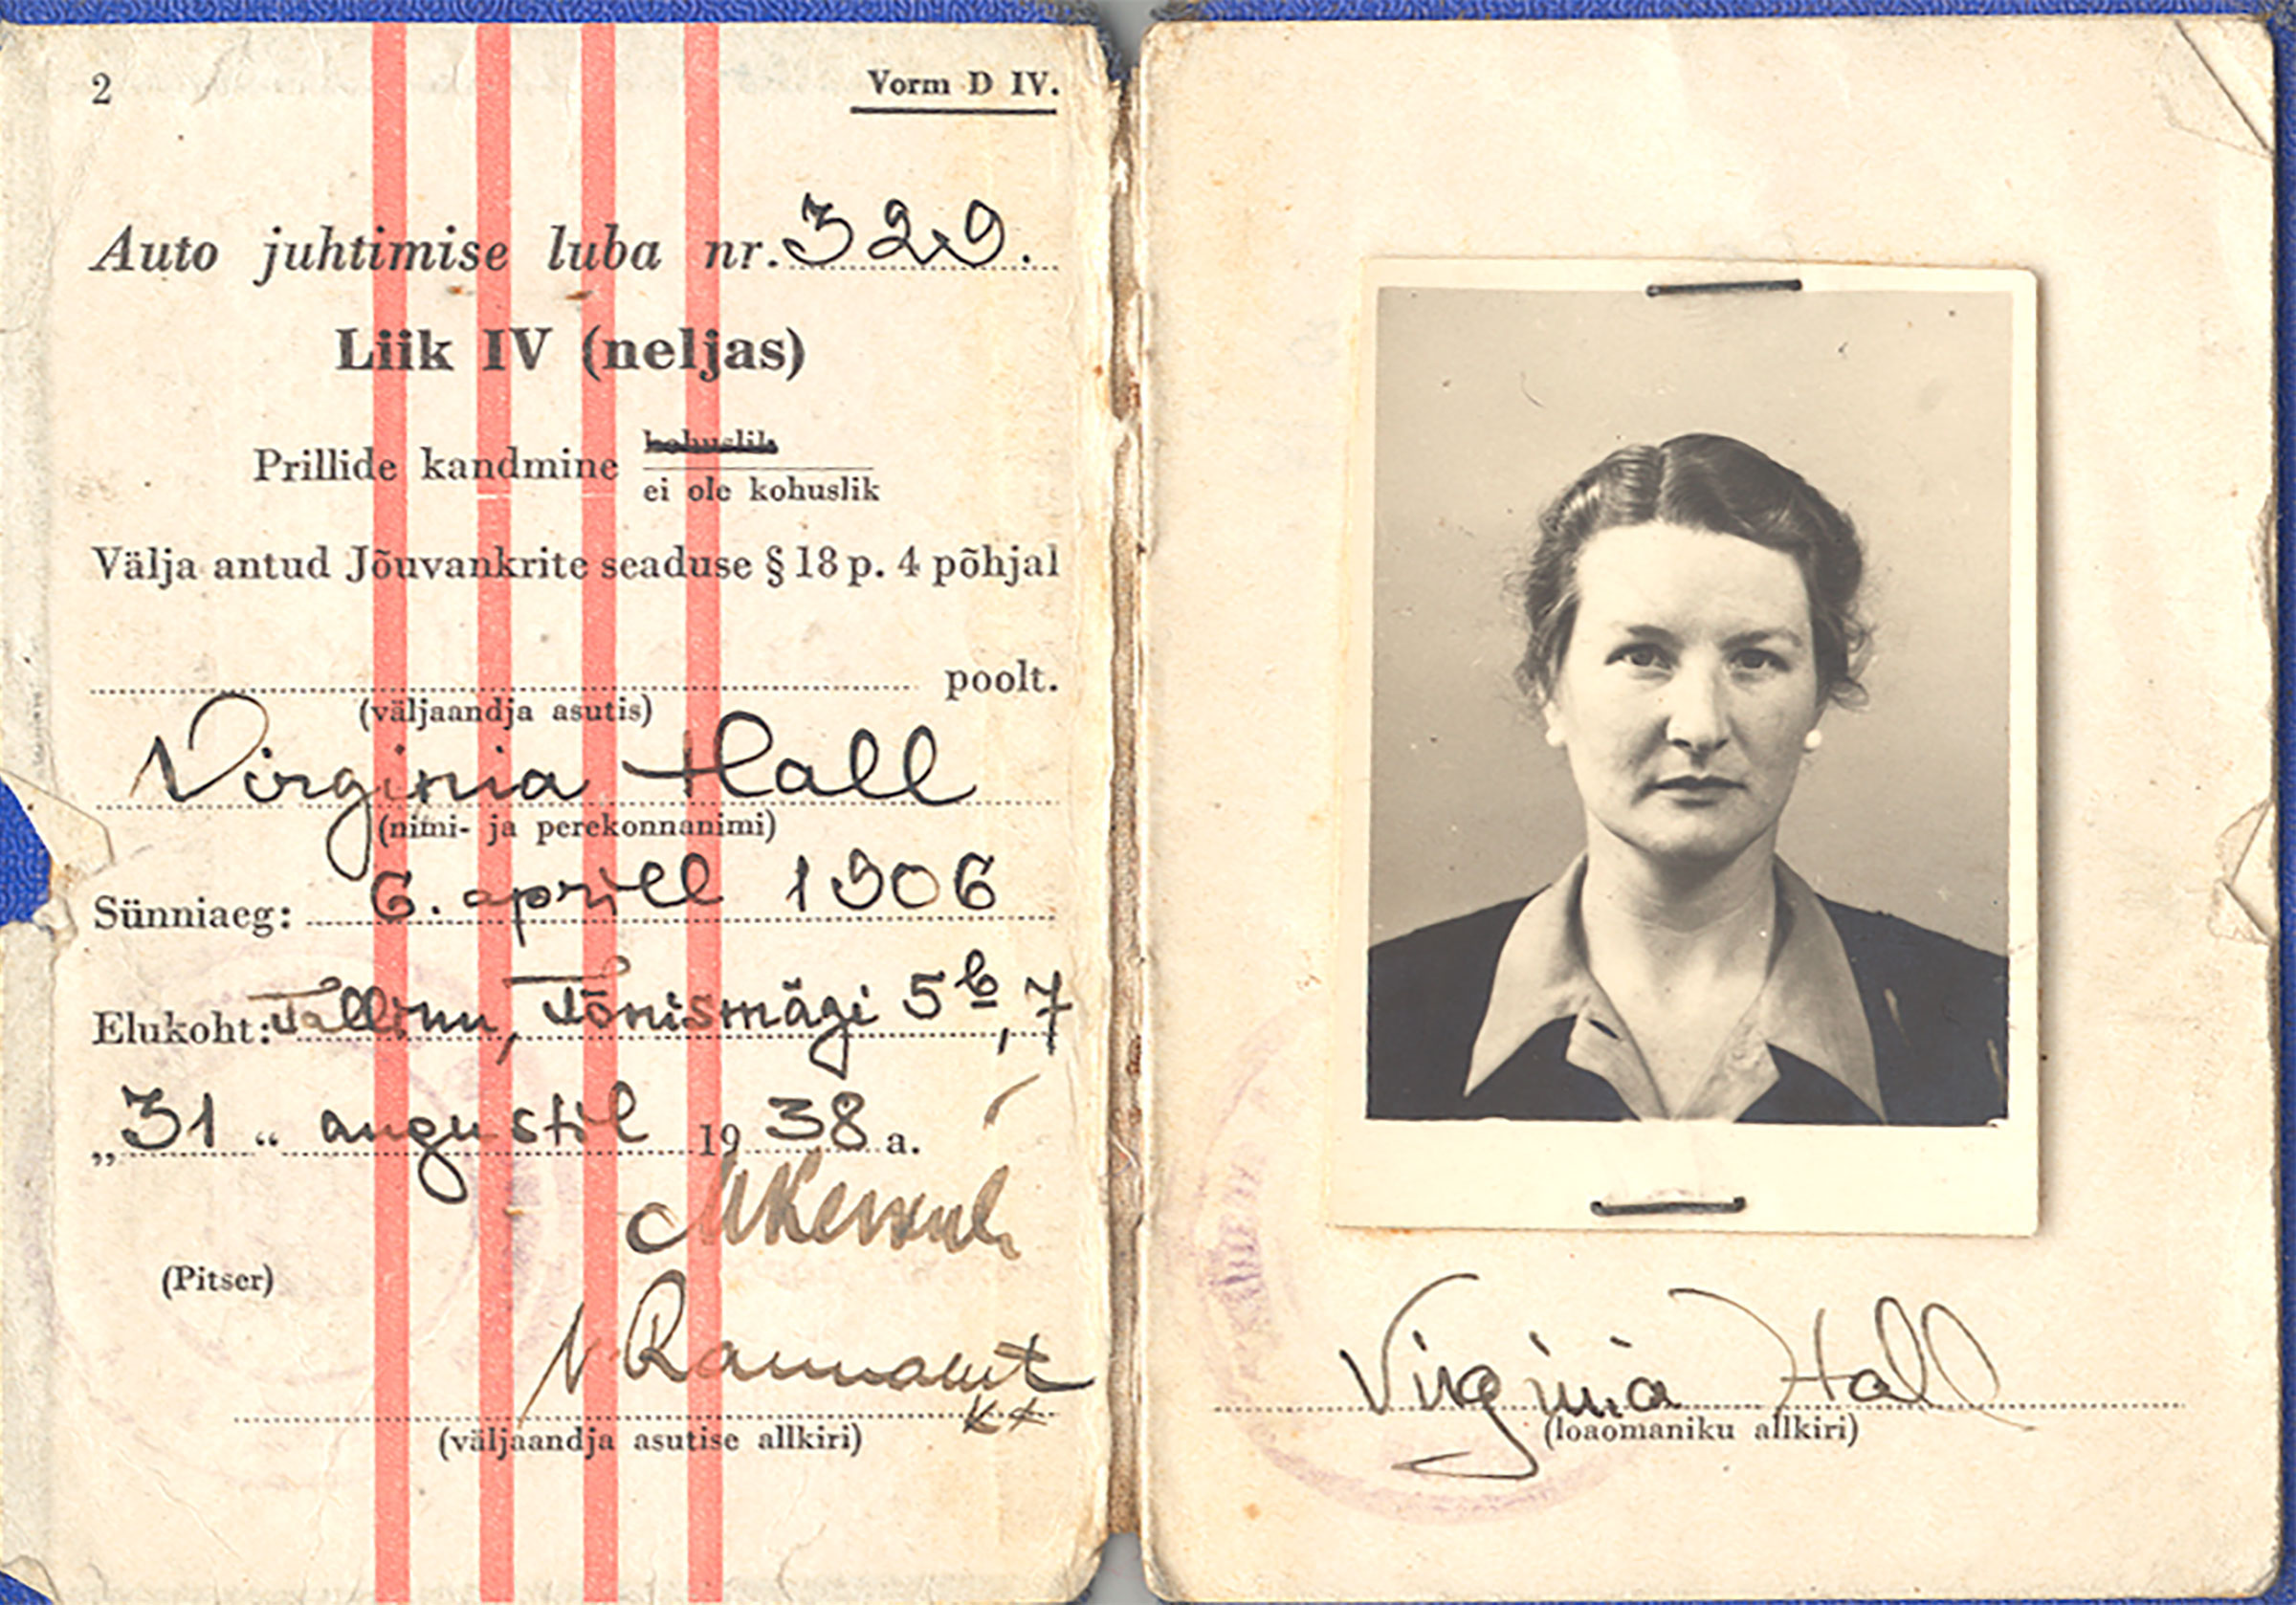 2
Vorm D IV.
Auto juhtimise luba nr. 329.
Liik IV (neljas)
kohuslik
Prillide kandmine
ei ole kohuslik
Välja antud Jõuvankrite seaduse § 18 p. 4 põhjal
poolt.
(väljaandja asutis)
Virginia Hall
(nimi- ja perekonnanimi)
Sünniaeg: 6. aprill 1906
Elukoht: Tallinn, Tõnismägi 5b, 7
„31“ augustil 1938 a.
(Pitser)
(väljaandja asutise allkiri)
Virginia Hall
(loaomaniku allkiri)